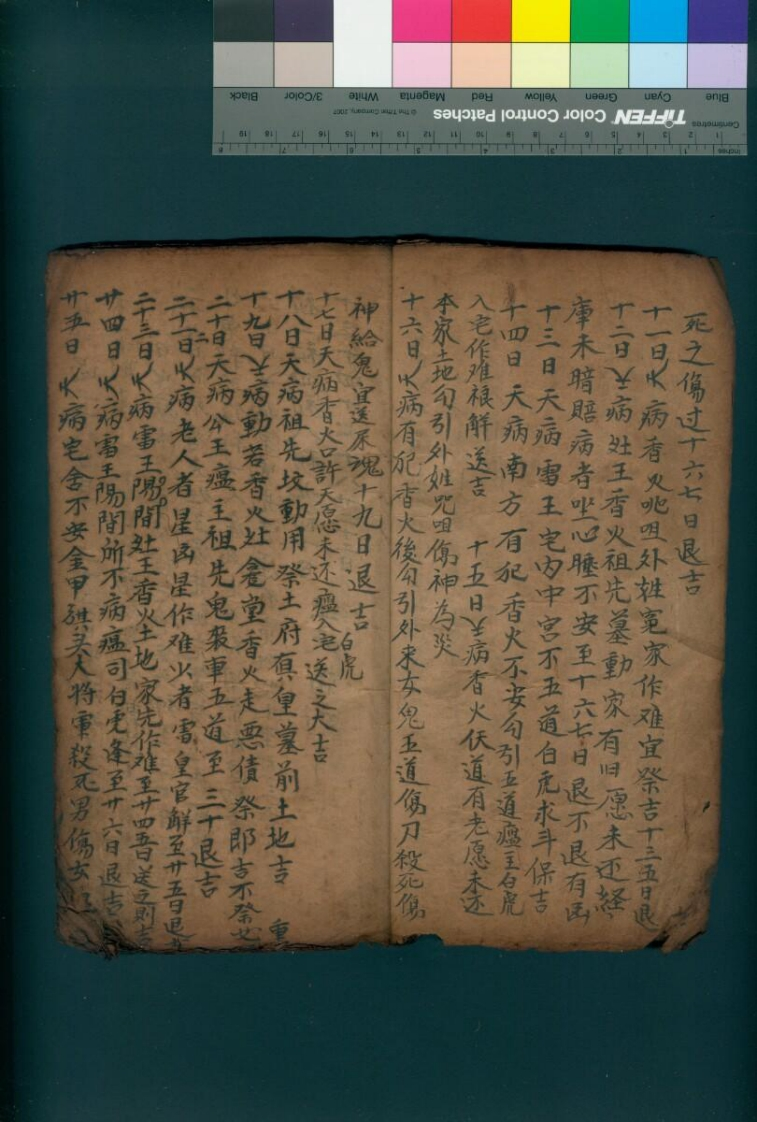 死之傷过十六七日退吉
十一日天病香火咒咀外姓冤家作难宜祭吉十三五日退
十二日天病灶王香火祖先墓動家有旧愿未还経
庫未賠病者坐心腫不安至十六七日退不退有凶
十三日天病雷王宅内中宫不五道白虎求斗保吉
十四日天病南方有犯香火不安勾引五道瘟王白虎
入宅作难祖解送吉 十五日天病香火伏道有老愿未还
本家土地勾引外姓咒咀傷神為災
十六日天病有犯香火後勾引外来女鬼五道傷刀殺死傷
神給鬼宜送床魂十九日退吉 白虎
十七日天病香火口許天愿未还瘟入宅送之大吉
十八日天病祖先坟動用祭土府真皇墓前土地吉
十九日天病動若香火灶龛堂香火走悪債祭即吉不祭
二十日天病公王瘟主祖先鬼報車五道至三十退吉
二十一日天病老人者星凶星作难少者雷皇官解至廿五日退
二十三日天病雷王陽間灶王香火土地家先作难至廿四五日送之則吉
廿四日天病雷王陽間所不病瘟司白虎逢至廿六日退吉
廿五日天病宅舍不安金甲 大將軍殺死男傷女
Blue Cyan Green Yellow Red Magenta White 3/Color Black
TIFFEN Color Control Patches © The Tiffen Company, 2007
Centimetres
Inches